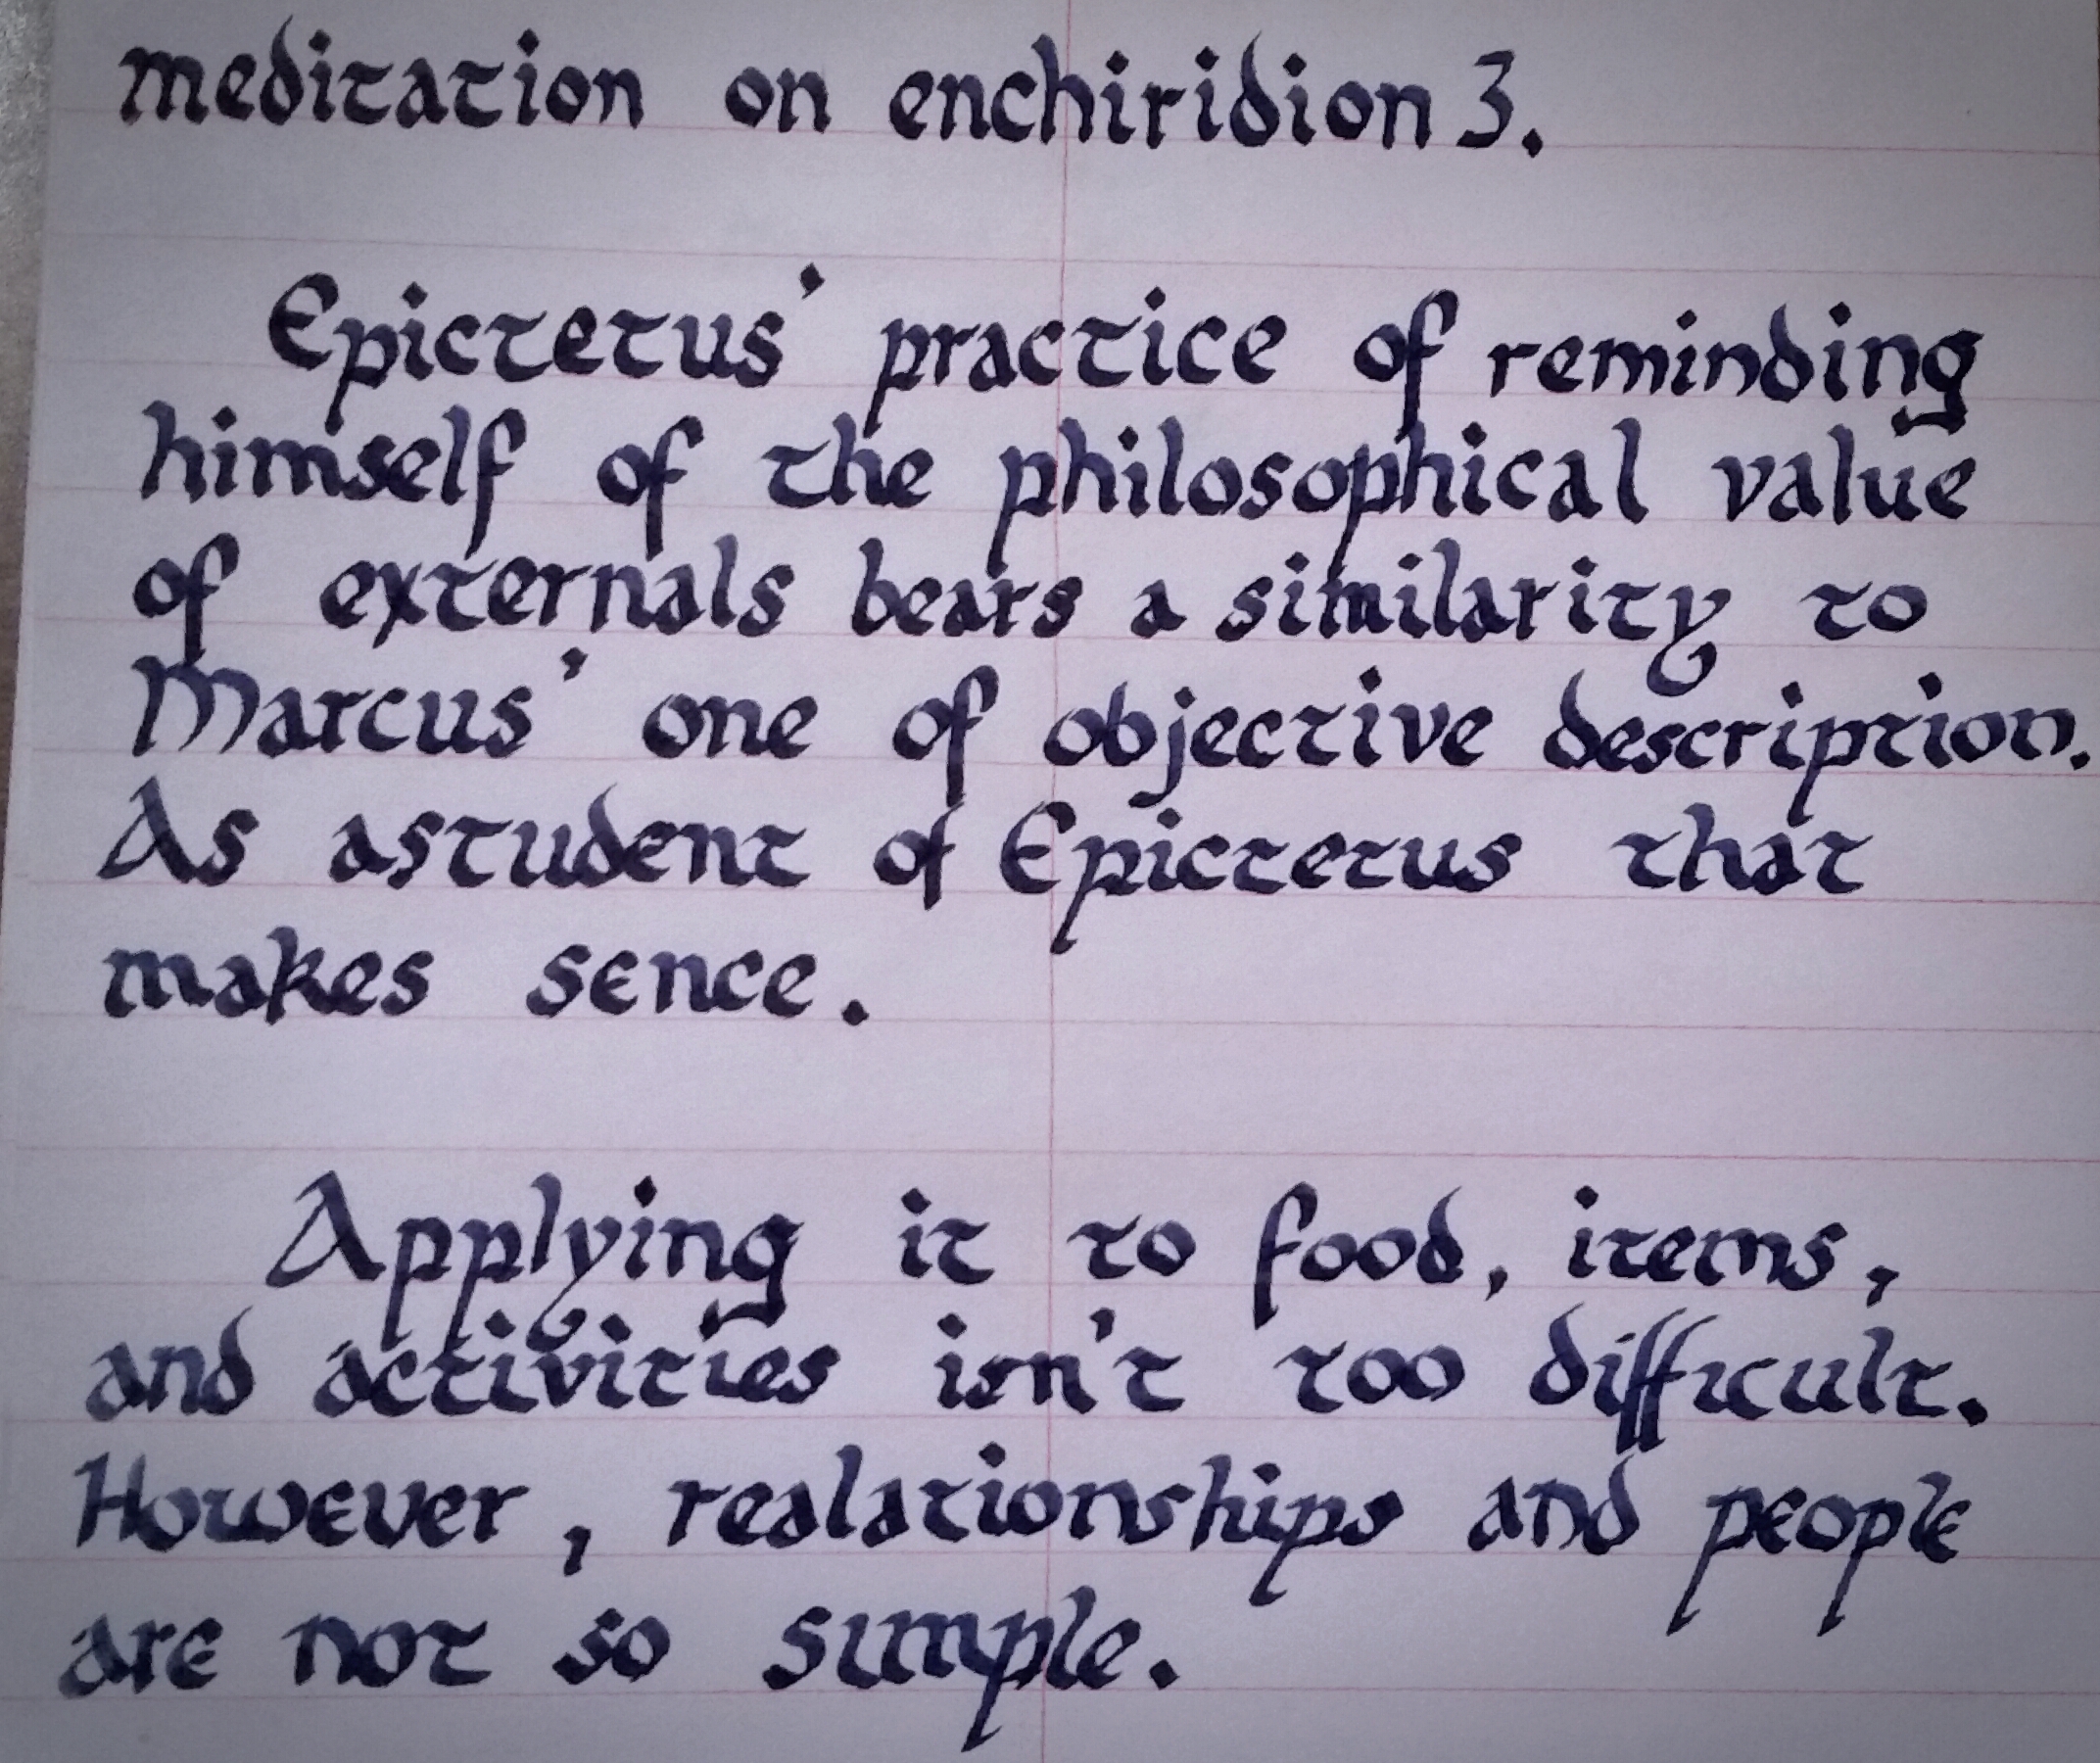 meditation on enchiridion 3.
Epictetus' practice of reminding
himself of the philosophical value
of externals bears a similarity to
Marcus' one of objective description.
As astudent of Epictetus that
makes sence.
Applying it to food, items,
and activities isn't too difficult.
However, realationships and people
are not so simple.